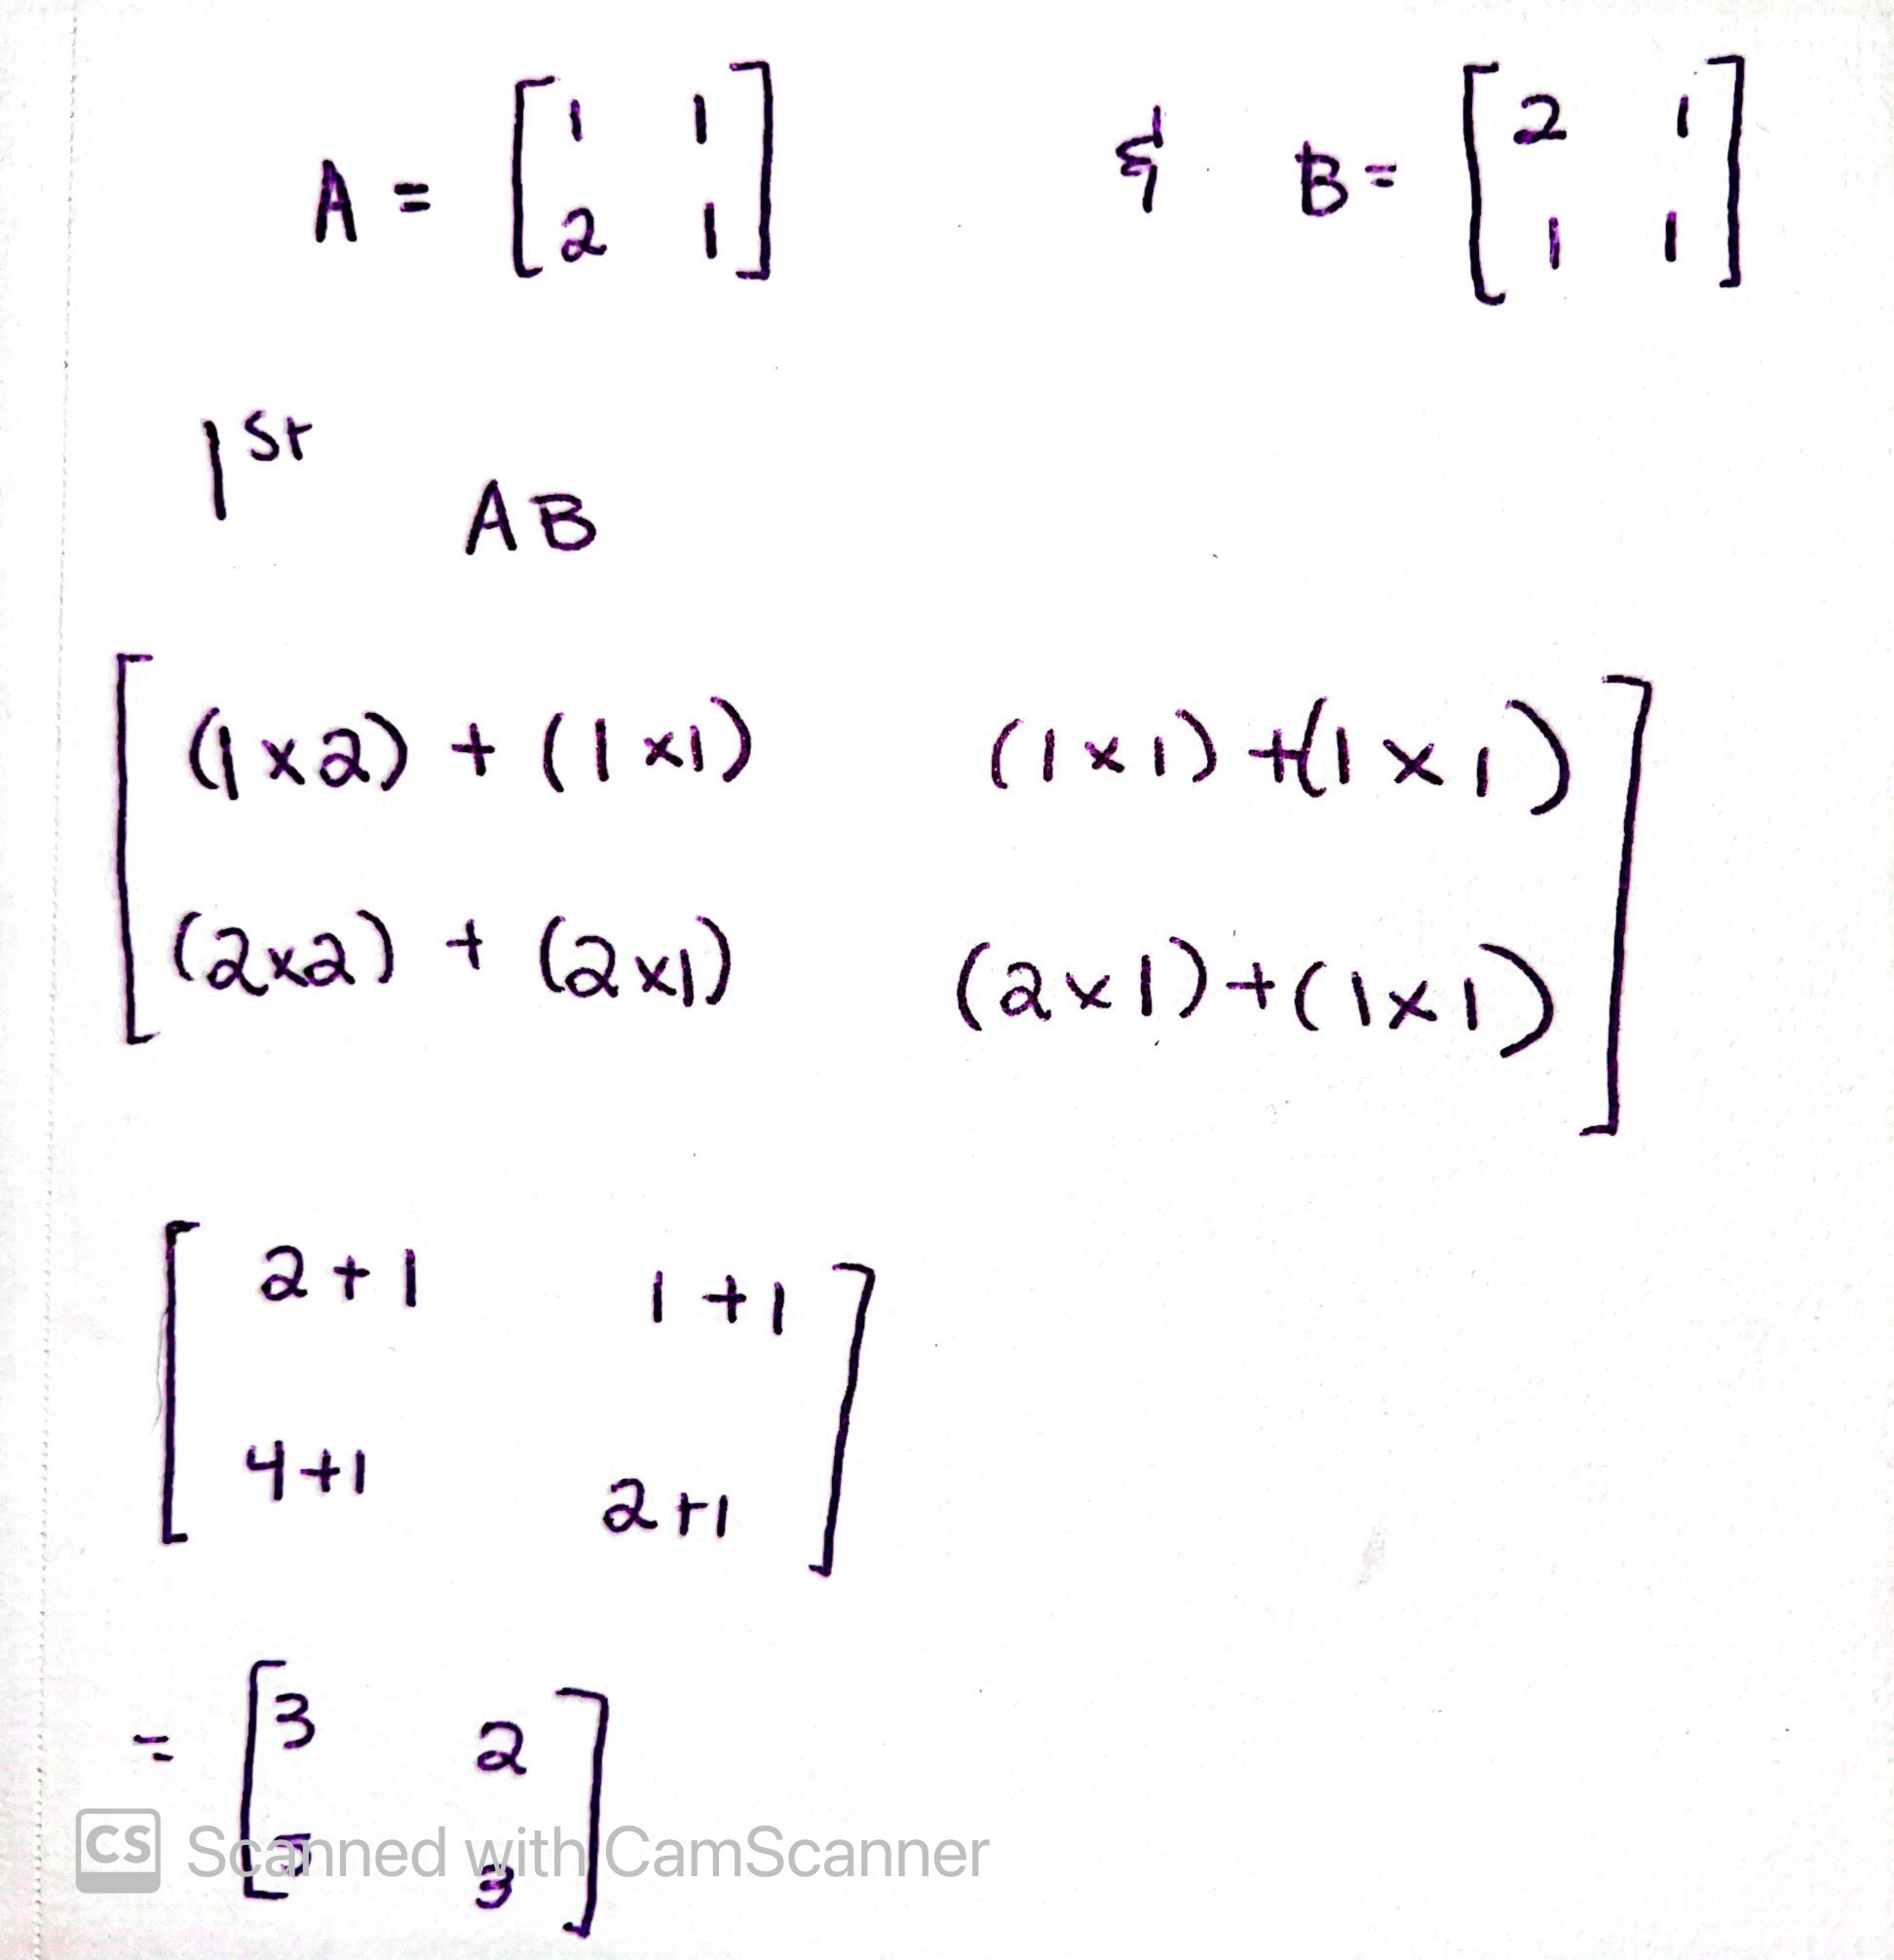 A = [ 1 1 & B = [ 2 1
2 1 ] 1 1 ]
1st
AB
[ (1x2) + (1x1) (1x1) + (1x1)
(2x2) + (2x1) (2x1) + (1x1) ]
[ 2+1 1+1
4+1 2+1 ]
= [ 3 2
5 3 ]
CS Scanned with CamScanner